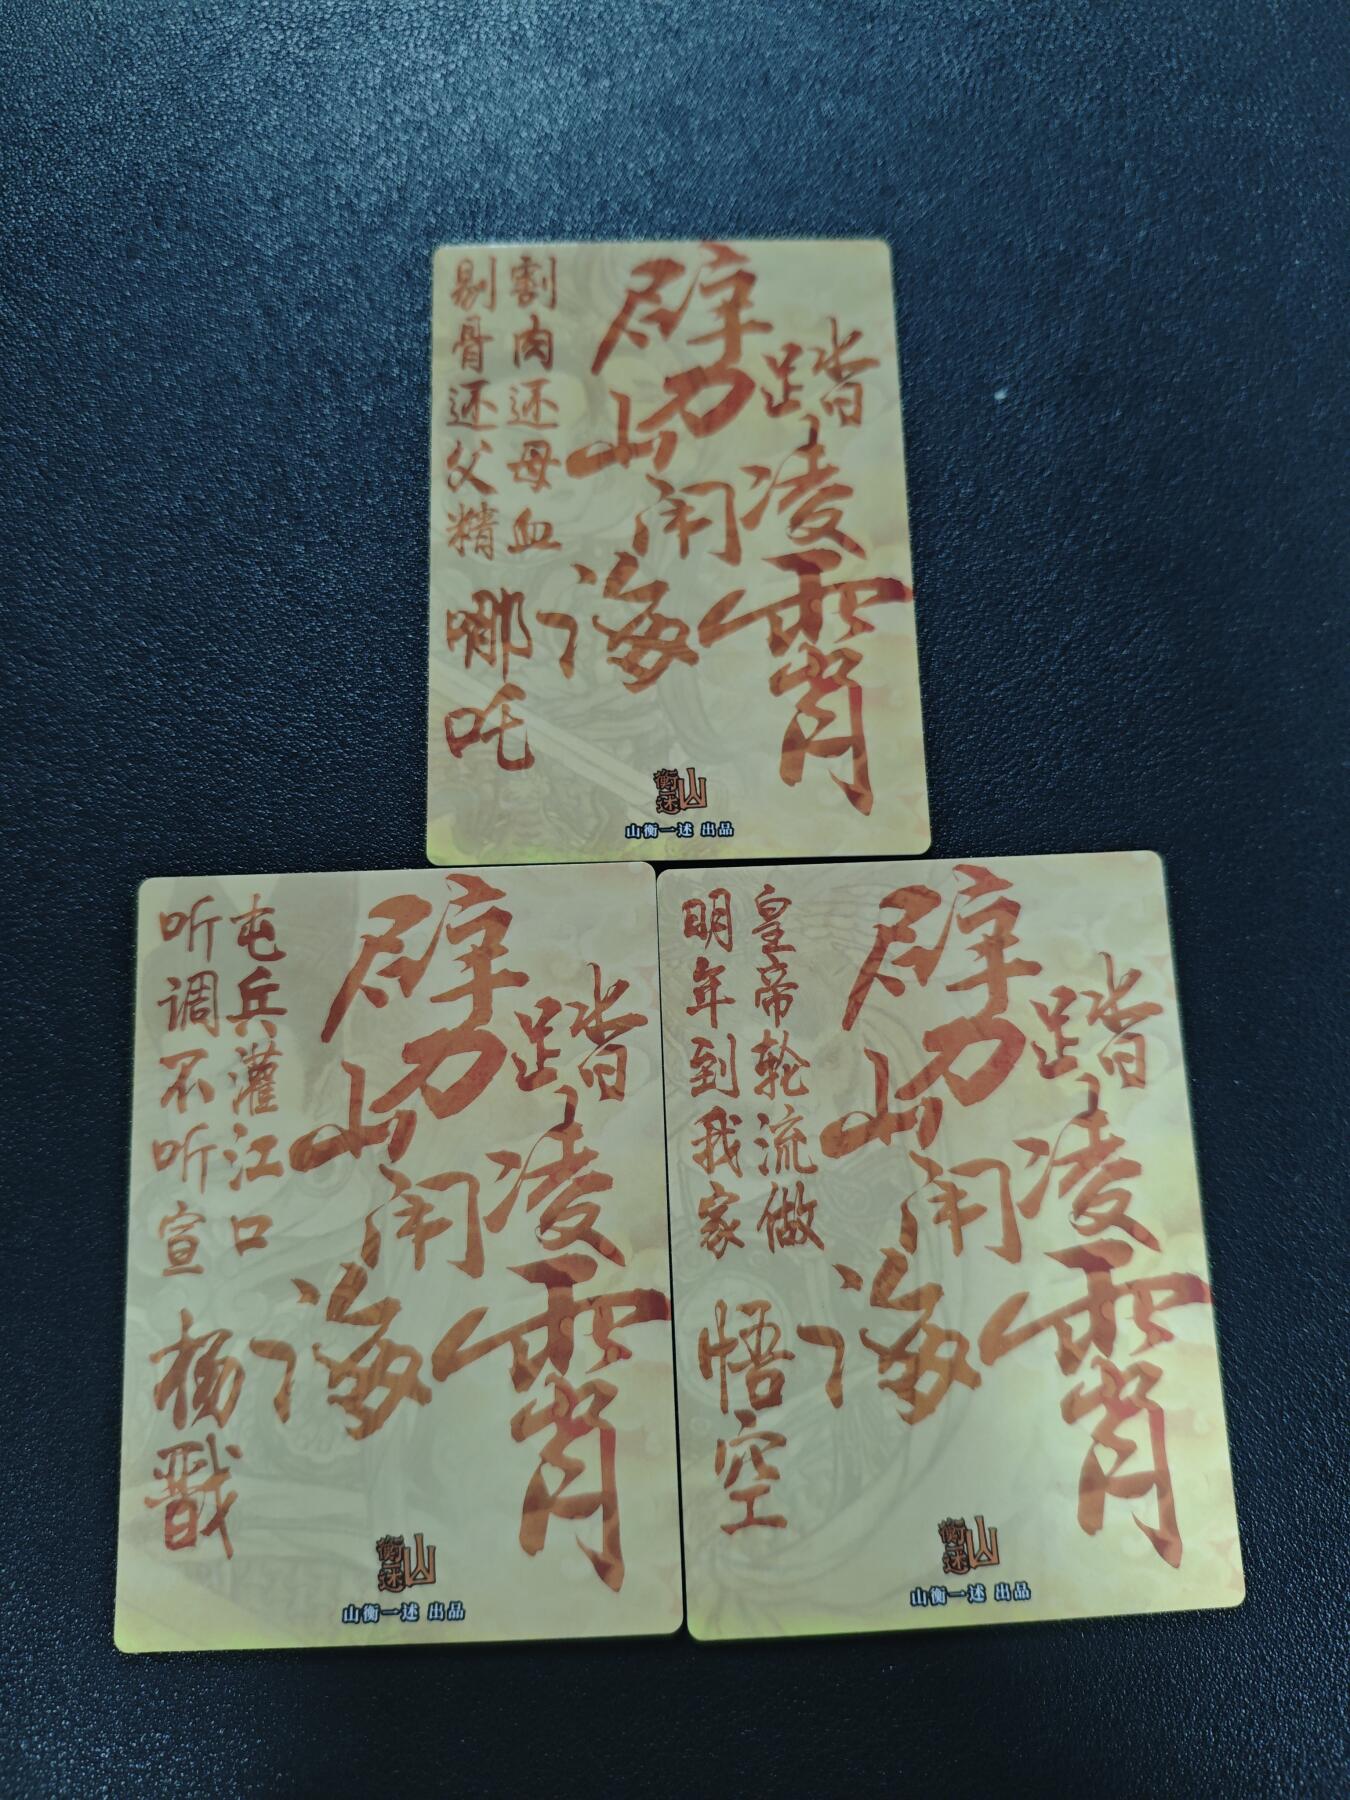 劈山闹海
踏凌霄
割肉还母血
剔骨还父精
哪吒
山衡一述
山衡一述 出品
劈山闹海
踏凌霄
屯兵灌江口
听调不听宣
杨戬
山衡一述
山衡一述 出品
劈山闹海
踏凌霄
皇帝轮流做
明年到我家
悟空
山衡一述
山衡一述 出品